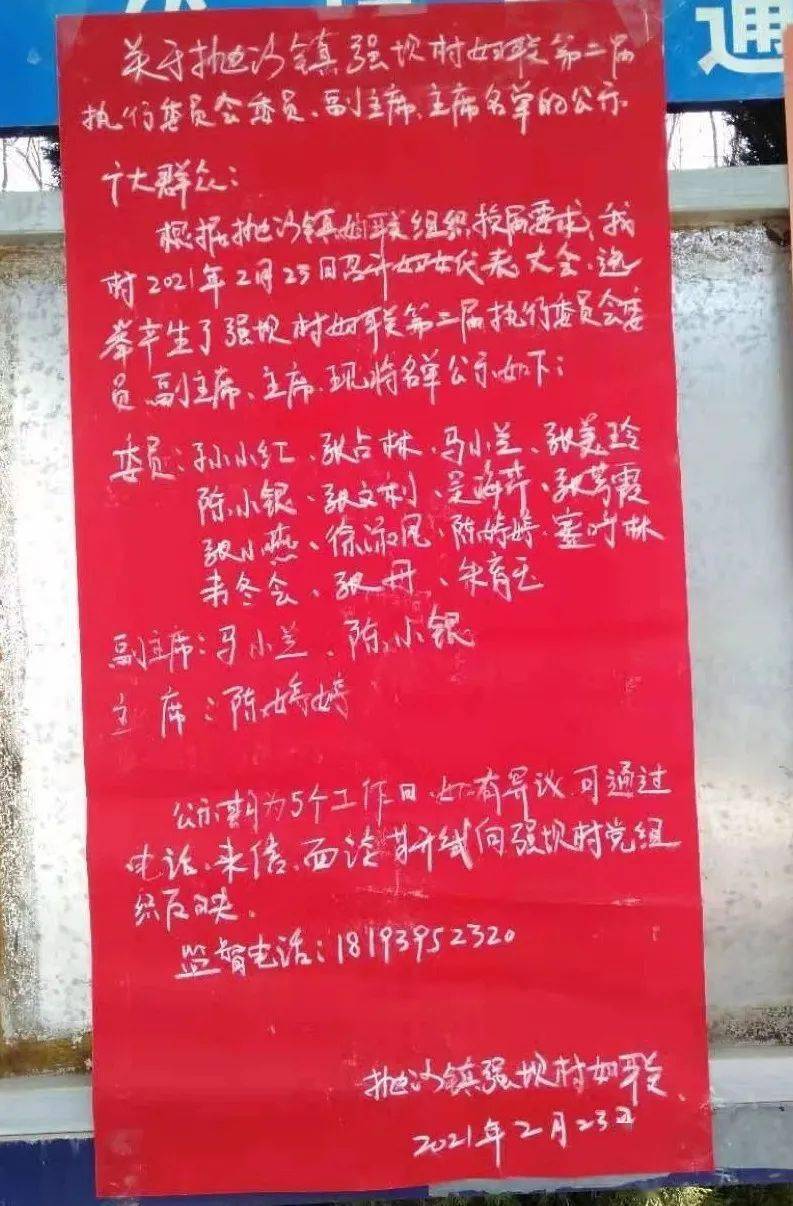 通
关于抛沙镇强坝村妇联第二届
执行委员会委员、副主席、主席名单的公示
广大群众:
根据抛沙镇妇联组织换届要求,我
村2021年2月23日召开妇女代表大会,选
举产生了强坝村妇联第二届执行委员会委
员、副主席、主席,现将名单公示如下:
委员:孙小红、张占林、马小兰、张美玲
陈小银、张文利、吴海芹、张菁霞
张小燕、徐淑凤、陈婷婷、叶林
韦冬会、张丹、朱育玉
副主席:马小兰、陈小银
主席:陈婷婷
公示期为5个工作日,如有异议,可通过
电话、来信、面谈等形式向强坝村党组
织反映。
监督电话:18193952320
抛沙镇强坝村妇联
2021年2月23日